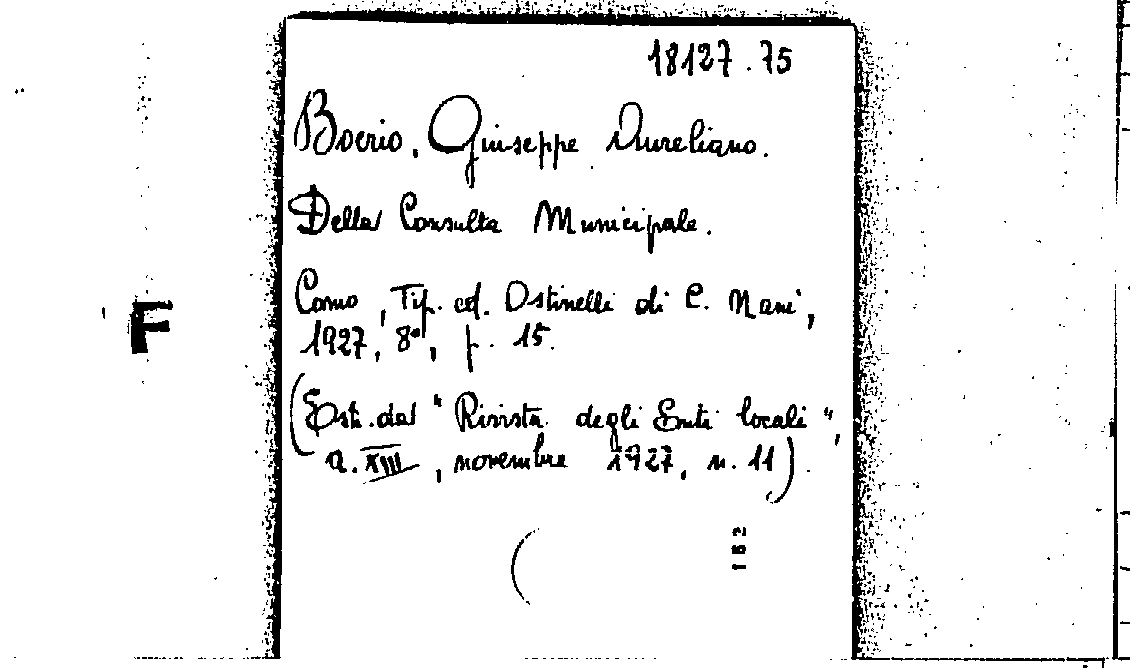 18127.75
Boerio, Giuseppe Aureliano.
Della Consulta Municipale.
F
Como, Tip. ed. Ostinelli di C. Nani,
1927, 8°, p. 15.
(Estr. dal "Rivista degli Enti locali",
a. XIII, novembre 1927, n. 11).